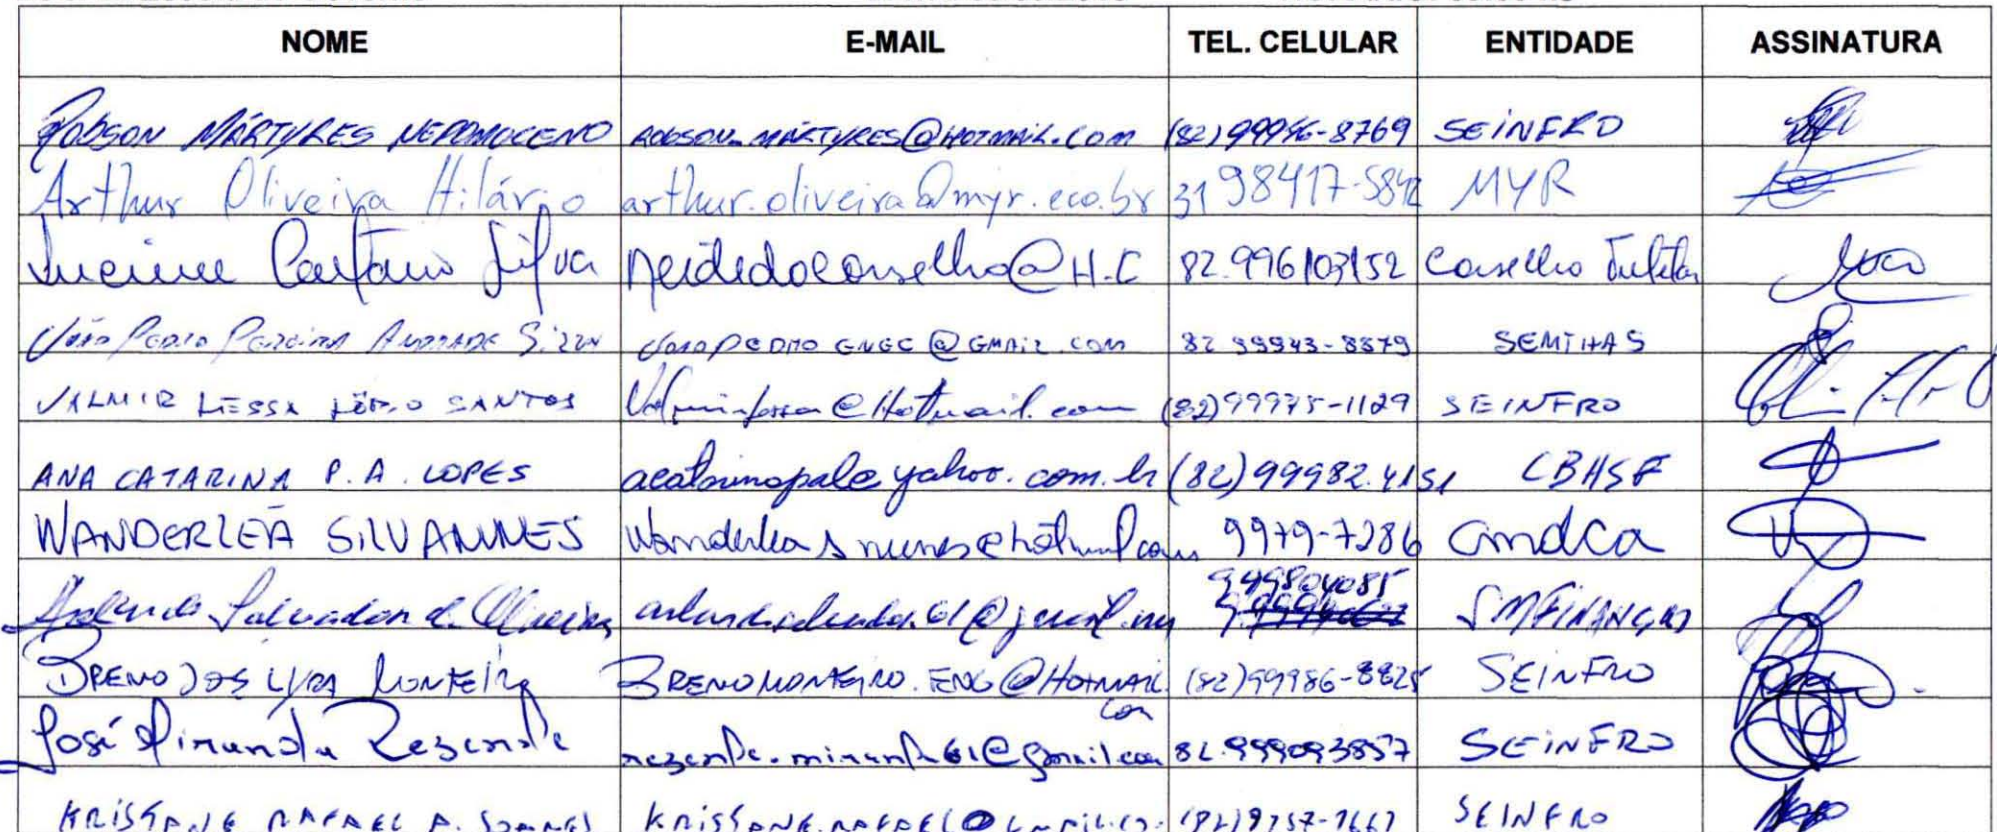 NOME E-MAIL TEL. CELULAR ENTIDADE ASSINATURA
ROBSON MÁRTYRES NEPOMOCENO ROBSON_MARTYRES@HOTMAIL.COM (82)99956-8769 SEINFRO
Arthur Oliveira Hilário arthur.oliveira@myr.eco.br 31 98417-5842 MYR
Luciene Caetano Silva neidedoconselho@H.C 82.996103152 Conselho Tutelar
João Pedro Pereira Andrade JOAOPEDRO ENGC@GMAIL.COM 82 99943-8879 SEMTHAS
VALMIR LESSA LÔBO SANTOS @Hotmail.com (82)99975-1129 SEINFRO
ANA CATARINA P. A. LOPES acatarinapal@yahoo.com.br (82)99982.4151 CBHSF
WANDERLEA SILVA NUNES Wanderlea s nunes@hotmail.com 9979-7286 cmdca
Salvador de Oliveira 999804085 SMFINANÇAS
BRENO JOS LYRA MONTEIRO BRENOMONTEIRO.ENG@HOTMAIL. (82)99986-8825 SEINFRO
com
José Miranda Rezende rezende.miranda61@gmail.com 82.999093857 SEINFRO
KRISTANE RAFAEL A. SOARES SEINFRO